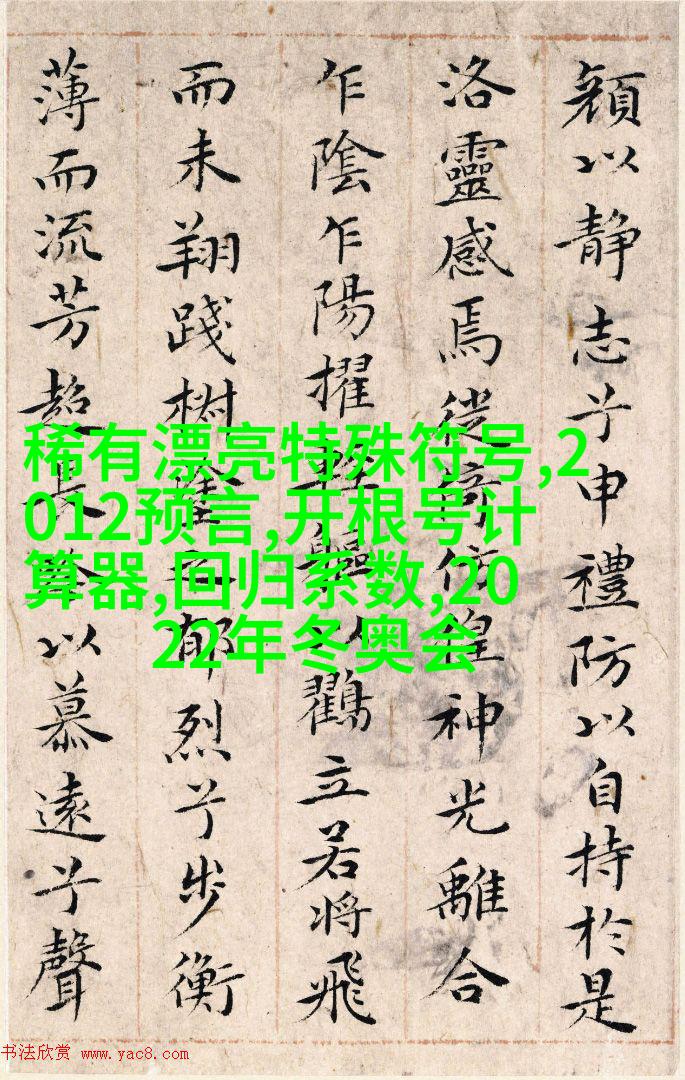 顏以静志兮申禮防以自持於是
洛靈感焉徙倚仿徨神光離合
乍陰乍陽擢輕軀以鸖立若將飛
而未翔踐樹塗之郁烈兮步衡
薄而流芳超長吟以慕遠兮聲
稀有漂亮特殊符号,2
012预言,开根号计
算器,回归系数,20
22年冬奥会
书法欣赏 www.yac8.com